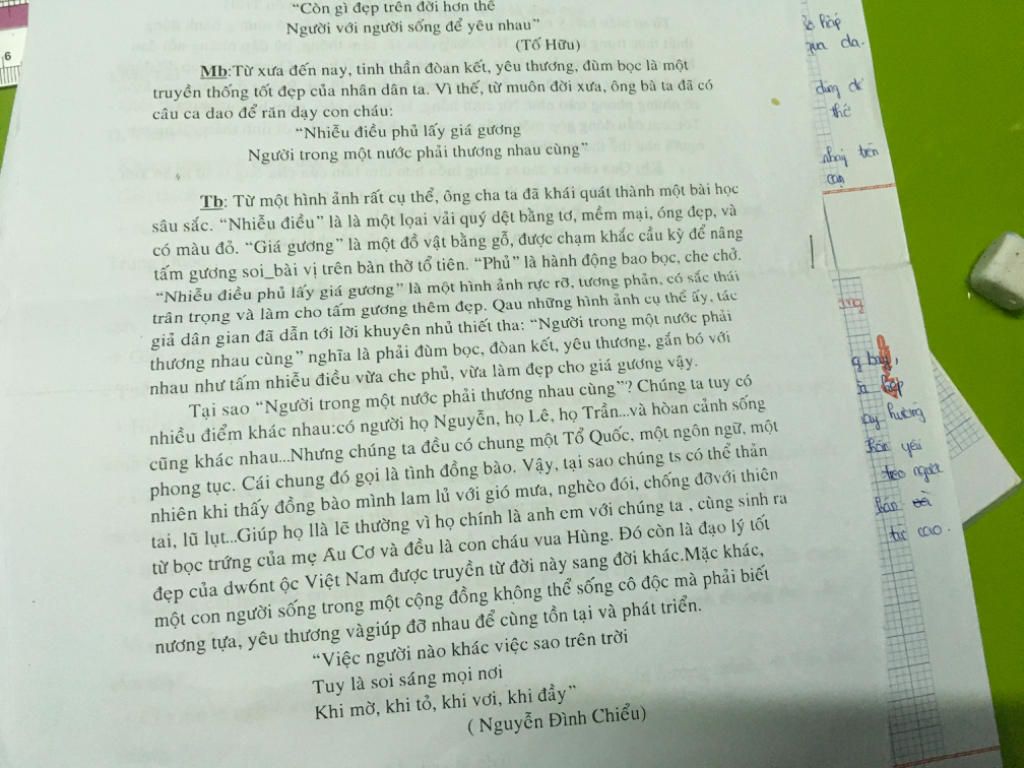 “Còn gì đẹp trên đời hơn thế
Người với người sống để yêu nhau”
(Tố Hữu)
Mb:Từ xưa đến nay, tinh thần đòan kết, yêu thương, đùm bọc là một
truyền thống tốt đẹp của nhân dân ta. Vì thế, từ muôn đời xưa, ông bà ta đã có
câu ca dao để răn dạy con cháu:
“Nhiễu điều phủ lấy giá gương
Người trong một nước phải thương nhau cùng”
Tb: Từ một hình ảnh rất cụ thể, ông cha ta đã khái quát thành một bài học
sâu sắc. “Nhiễu điều” là là một lọai vải quý dệt bằng tơ, mềm mại, óng đẹp, và
có màu đỏ. “Giá gương” là một đồ vật bằng gỗ, được chạm khắc cầu kỳ để nâng
tấm gương soi_bài vị trên bàn thờ tổ tiên. “Phủ” là hành động bao bọc, che chở.
“Nhiễu điều phủ lấy giá gương” là một hình ảnh rực rỡ, tương phản, có sắc thái
trân trọng và làm cho tấm gương thêm đẹp. Qau những hình ảnh cụ thể ấy, tác
giả dân gian đã dẫn tới lời khuyên nhủ thiết tha: “Người trong một nước phải
thương nhau cùng” nghĩa là phải đùm bọc, đòan kết, yêu thương, gắn bó với
nhau như tấm nhiễu điều vừa che phủ, vừa làm đẹp cho giá gương vậy.
Tại sao “Người trong một nước phải thương nhau cùng”? Chúng ta tuy có
nhiều điểm khác nhau:có người họ Nguyễn, họ Lê, họ Trần...và hòan cảnh sống
cũng khác nhau...Nhưng chúng ta đều có chung một Tổ Quốc, một ngôn ngữ, một
phong tục. Cái chung đó gọi là tình đồng bào. Vậy, tại sao chúng ts có thể thản
nhiên khi thấy đồng bào mình lam lủ với gió mưa, nghèo đói, chống đỡvới thiên
tai, lũ lụt...Giúp họ llà lẽ thường vì họ chính là anh em với chúng ta , cùng sinh ra
từ bọc trứng của mẹ Âu Cơ và đều là con cháu vua Hùng. Đó còn là đạo lý tốt
đẹp của dw6nt ộc Việt Nam được truyền từ đời này sang đời khác.Mặc khác,
một con người sống trong một cộng đồng không thể sống cô độc mà phải biết
nương tựa, yêu thương vàgiúp đỡ nhau để cùng tồn tại và phát triển.
“Việc người nào khác việc sao trên trời
Tuy là soi sáng mọi nơi
Khi mờ, khi tỏ, khi vơi, khi đầy”
( Nguyễn Đình Chiểu)
6
qua da.
thế
nhảy trên
cạn
hướng
yêu
trèo ngược
tự cao.